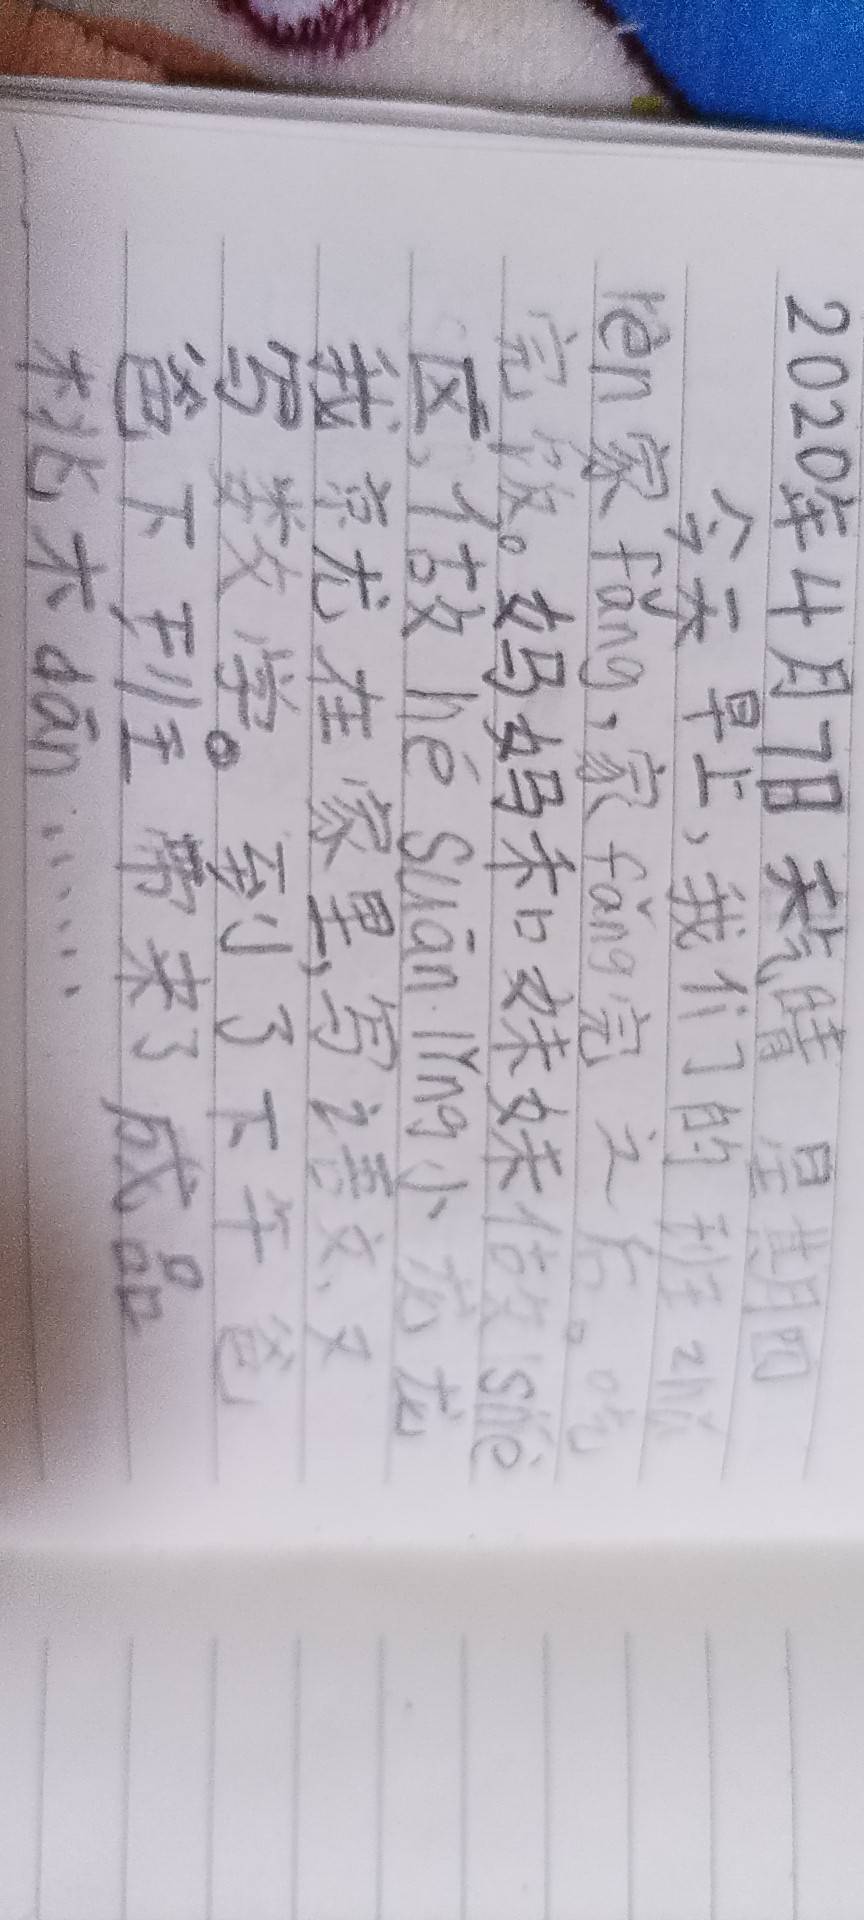 2020年4月7日 天气晴 星期四
今天早上,我们的班zhǔ
rèn家fǎng,家fǎng完之后。吃
完饭。妈妈和妹妹做shè
区,做hé suān.líng小龙龙
我京尤在家里,写语文,又
写数学。到了下午爸
爸下班带来了成品
桃木dān……